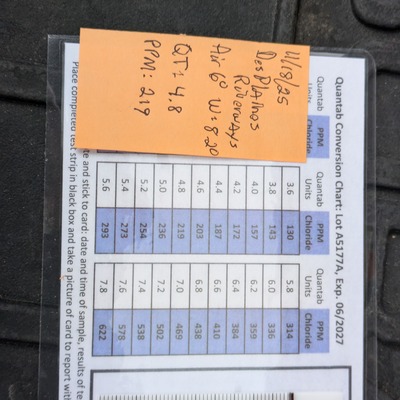 Quantab Conversion Chart: Lot A5177A, Exp. 06/2027
11/18/25
Des Plaines
Riverways
Air 6° W = 8.20
QT = 4.8
PPM: 219
Quantab Units PPM Chloride Quantab Units PPM Chloride
PPM Chloride
3.6 130 5.8 314
3.8 143 6.0 336
4.0 157 6.2 359
4.2 172 6.4 384
4.4 187 6.6 410
4.6 203 6.8 438
4.8 219 7.0 469
5.0 236 7.2 502
5.2 254 7.4 538
5.4 273 7.6 578
5.6 293 7.8 622
Place completed test strip in black box and take a picture of card to report with
te and stick to card: date and time of sample, results of te